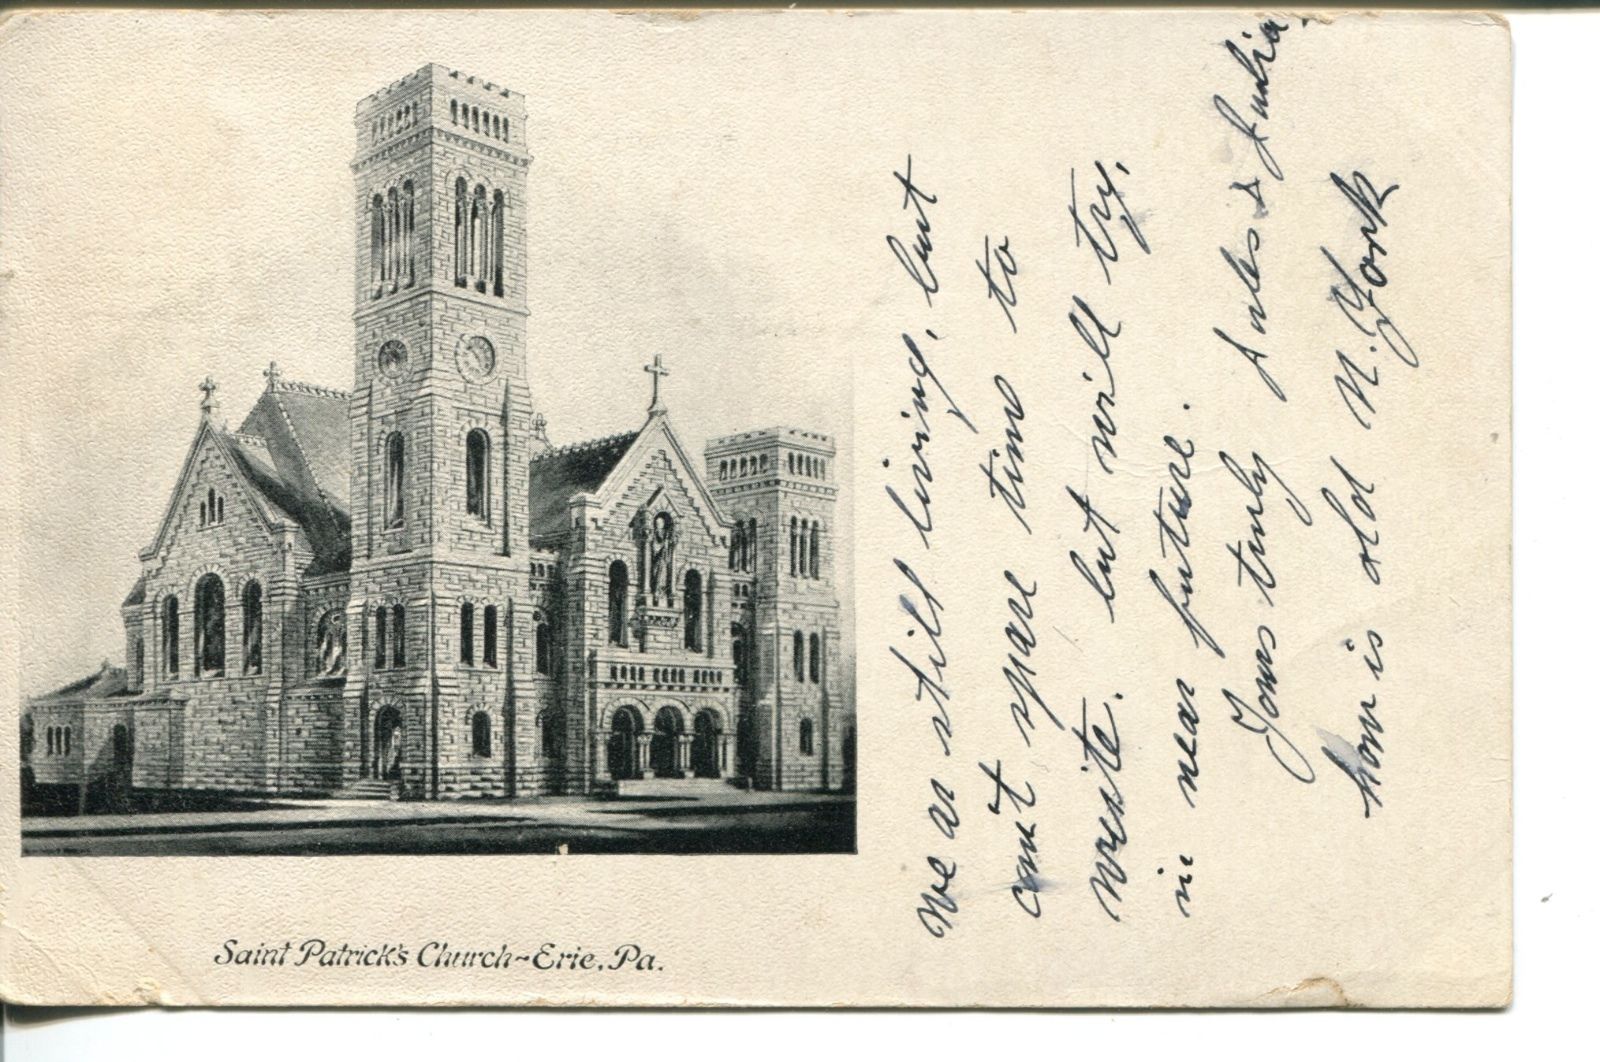 Saint Patrick's Church~Erie, Pa.
We ar still living, but
can't spare time to
write. but will try,
in near future.
Yours truly Jules & Julia,
how is old N. York